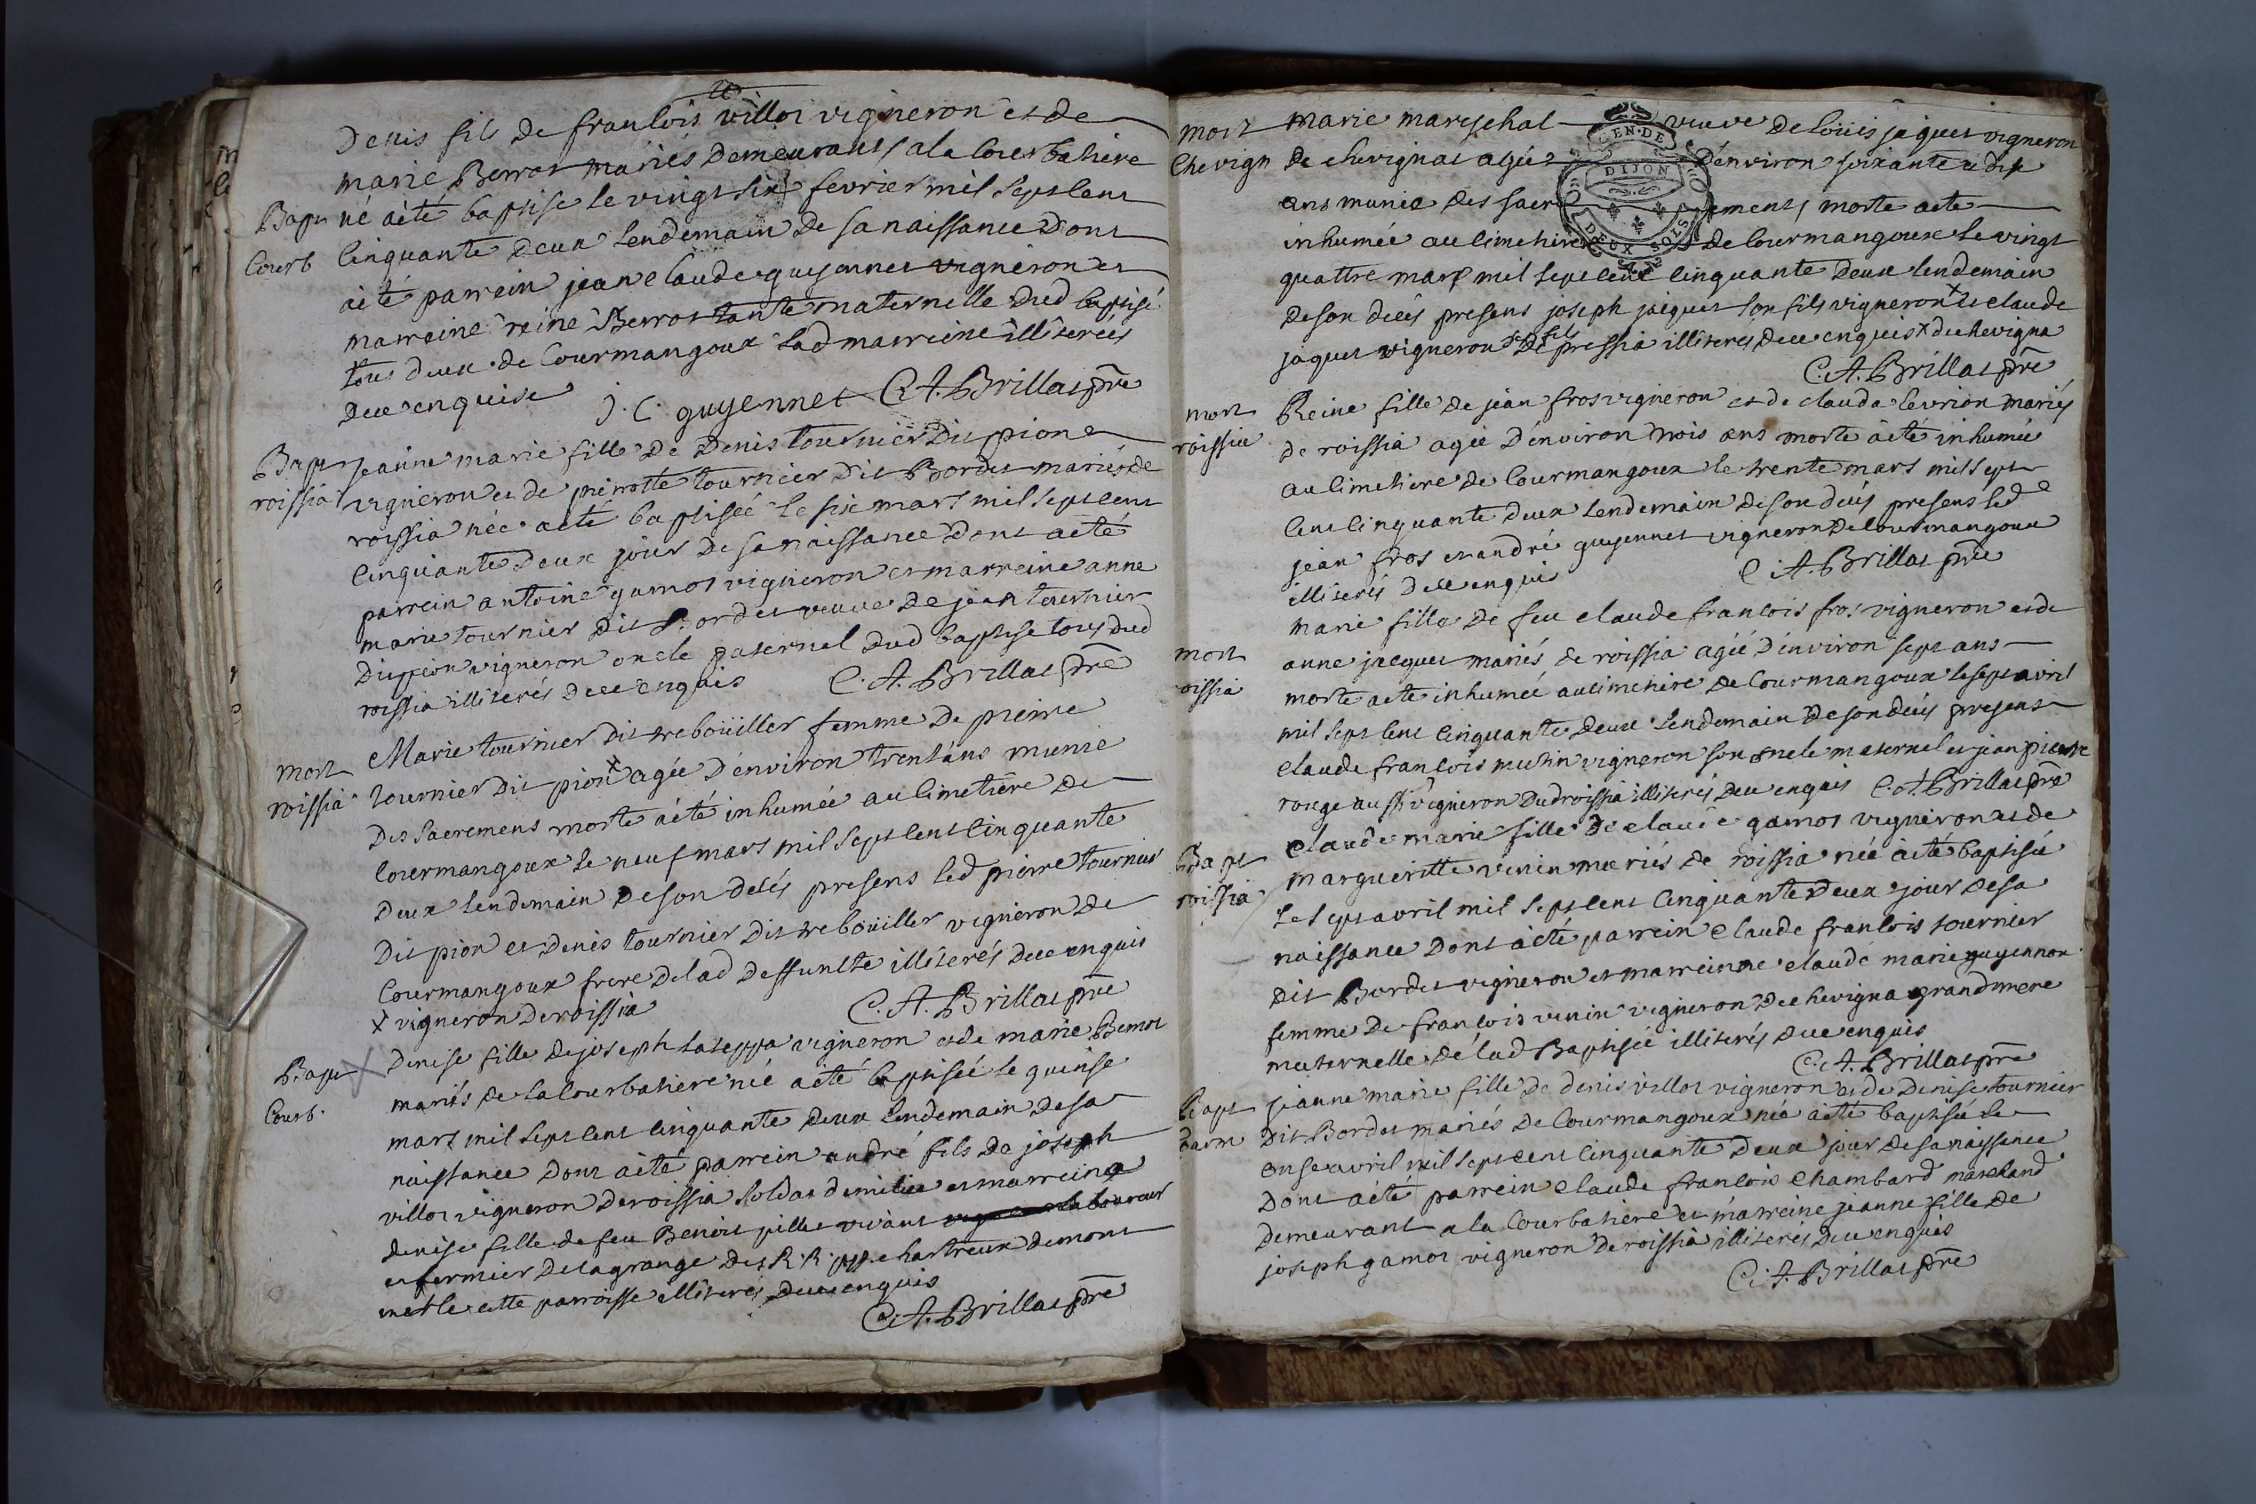 Denis fils de francois villot vigneron et de
marie Berrot mariés demeurants a la courbatiere
Bapt né a été baptisé le vingt six fevrier mil sept cent
Courb cinquante deux lendemain de sa naissance dont
a été parrein jean claude guyennet vigneron et
marreine reine Berrot tante maternelle dud baptisé
tous deux de Courmangoux lad marreine illiterée
de ce enquise J. C. guyennet C. A. Brillat pre
Bapt jeanne marie fille de Denis tournier dit pion
roissia vigneron et de pierrotte tournier dit Bordet mariés de
roissia née a été baptisée le six mars mil sept cent
cinquante deux jour de sa naissance dont a été
parrein antoine gamot vigneron et marreine anne
marie tournier dit Bordet veuve de jean tournier
dit pion vigneron oncle paternel dud baptisé tous dud
roissia illiterés de ce enquis C. A. Brillat pre
Marie tournier dit trebouiller femme de pierre
mort tournier dit pion x agée d'environ trent'ans munie
roissia des sacremens morte a été inhumée au cimetiere de
Courmangoux le neuf mars mil sept cent cinquante
deux lendemain de son decés presens led pierre tournier
dit pion et denis tournier dit trebouiller vigneron de
Courmangoux frere de lad deffuncte illiterés de ce enquis
x vigneron de roissia C. A. Brillat pre
Bapt denise fille de joseph lateppa vigneron et de marie Bernot
Courb. mariés de la courbatiere née a été baptisée le quinse
mars mil sept cent cinquante deux lendemain de sa
naissance dont a été parrein andré fils de joseph
villot vigneron de roissia soldat de milice et marreine
denise fille de feu Benoit pillet vivant laboureur
et fermier de la grange des R. R. pp. chartreux de mont
merle cette parroisse illiterés de ce enquis
C. A. Brillat pre
mort marie mareschal veuve de loüis jaques vigneron
Chevign de chevignat agée d'environ soixante et dix
ans munie des sacrements morte a été
inhumée au cimetiere de Courmangoux le vingt
quattre mars mil sept cent cinquante deux lendemain
de son decés presens joseph jacques son fils vigneron x et claude
jaques vigneron son fils de pressia illiterés de ce enquis x de chevigna
C. A. Brillat pre
mort Reine fille de jean fros vigneron et de claudа levrion mariés
roissia de roissia agée d'environ trois ans morte a été inhumée
au cimetiere de Courmangoux le trente mars mil sept
cent cinquante deux lendemain de son decés presens led
jean fros et andré guyennet vigneron de Courmangoux
illiterés de ce enquis C. A. Brillat pre
marie fille de feu claude francois fros vigneron et de
mort anne jacques mariés de roissia agée d'environ sept ans
roissia morte a été inhumée au cimetiere de Courmangoux le sept avril
mil sept cent cinquante deux lendemain de son decés presens
claude francois mutin vigneron son oncle maternel et jean pierre
rouge aussi vigneron dud roissia illiterés de ce enquis C. A. Brillat pre
claude marie fille de claude gamot vigneron et de
Bapt margueritte venin mariés de roissia née a été baptisée
roissia le sept avril mil sept cent cinquante deux jour de sa
naissance dont a été parrein claude francois tournier
dit Bordet vigneron et marreinne claude marie guyennon
femme de francois venin vigneron de chevigna grandmere
maternelle de lad Baptisée illiterés de ce enquis
C. A. Brillat pre
Bapt jeanne marie fille de denis villot vigneron et de denise tournier
dit Bordet mariés de Courmangoux née a été baptisée le
onse avril mil sept cent cinquante deux jour de sa naissance
dont a été parrein claude francois chambard marchand
demeurant a la Courbatiere et marreine jeanne fille de
joseph gamot vigneron de roissia illiterés de ce enquis
C. A. Brillat pre
GEN. DE
DIJON
DEUX SOLS